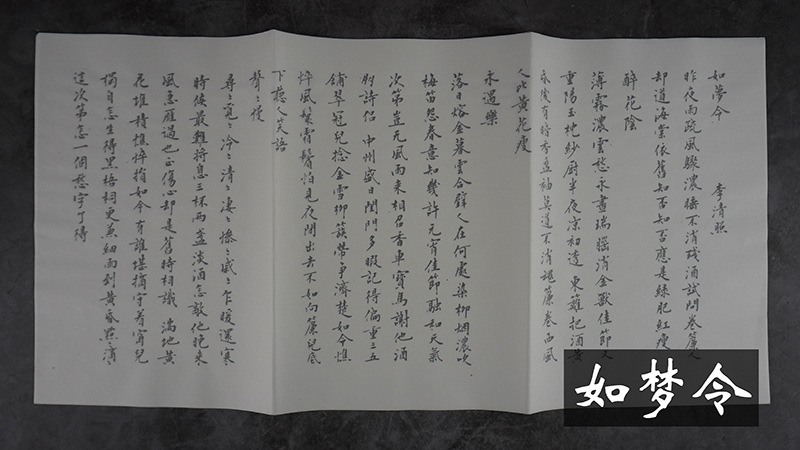 如夢令 李清照
昨夜雨疏風驟濃睡不消殘酒試問卷簾人
却道海棠依舊知否知否應是綠肥紅瘦
醉花陰
薄霧濃雲愁永晝瑞腦消金獸佳節又
重陽玉枕紗厨半夜凉初透東籬把酒黃
昏後有暗香盈袖莫道不消魂簾卷西風
人比黃花瘦
永遇樂
落日熔金暮雲合璧人在何處染柳烟濃吹
梅笛怨春意知幾許元宵佳節融和天氣
次第豈无風雨來相召香車寶馬謝他酒
朋詩侶中州盛日閨門多暇記得偏重三五
鋪翠冠兒捻金雪柳簇帶爭濟楚如今憔
悴風鬟霜鬢怕見夜間出去不如向簾兒底
下聽人笑語
聲〻慢
尋〻覓〻冷〻清〻凄〻慘〻戚〻乍暖還寒
時候最難將息三杯兩盞淡酒怎敵他晚來
風急雁過也正傷心却是舊時相識滿地黃
花堆積憔悴損如今有誰堪摘守着窗兒
獨自怎生得黑梧桐更兼細雨到黃昏點〻滴〻
這次第怎一個愁字了得
如梦令